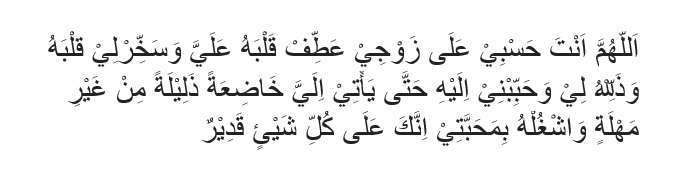 اَللّٰهُمَّ اَنْتَ حَسْبِيْ عَلَى زَوْجِيْ عَطِّفْ قَلْبَهُ عَلَيَّ وَسَخِّرْلِيْ قلْبَهُ
وَذَلِّلْهُ لِيْ وَحَبِّبْنِيْ اِلَيْهِ حَتَّى يَأْتِيْ اِلَيَّ خَاضِعَةً ذَلِيْلَةً مِنْ غَيْرِ
مَهْلَةٍ وَاشْغُلْهُ بِمَحَبَّتِيْ اِنَّكَ عَلَى كُلِّ شَيْئٍ قَدِيْرٌ